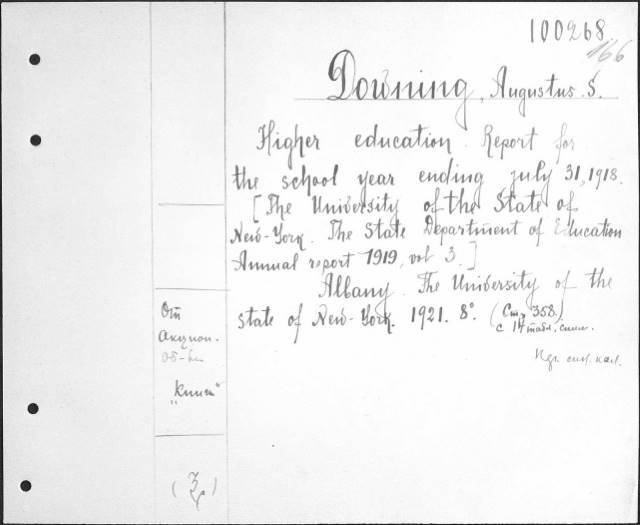 100268
166
Downing, Augustus. S.
Higher education. Report for
the school year ending july 31, 1918.
[The University of the State of
New-York. The State Department of Education
Annual report 1919, vol 3.]
Albany. The University of the
state of New-York. 1921. 8°. (Стр 358)
с 14 табл., сним.
От
Акцион.
об-ва
„Книга“